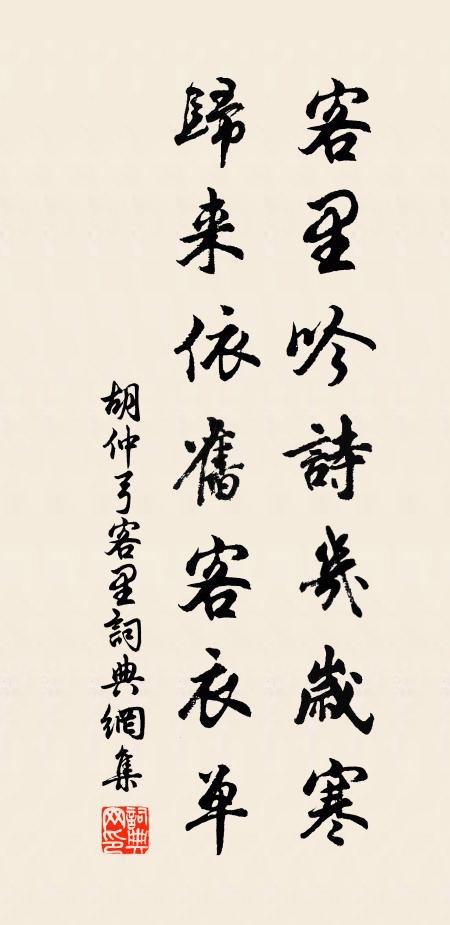 客里吟詩幾歲寒
歸来依舊客衣单
胡仲弓客里詞典網集
詞典網印